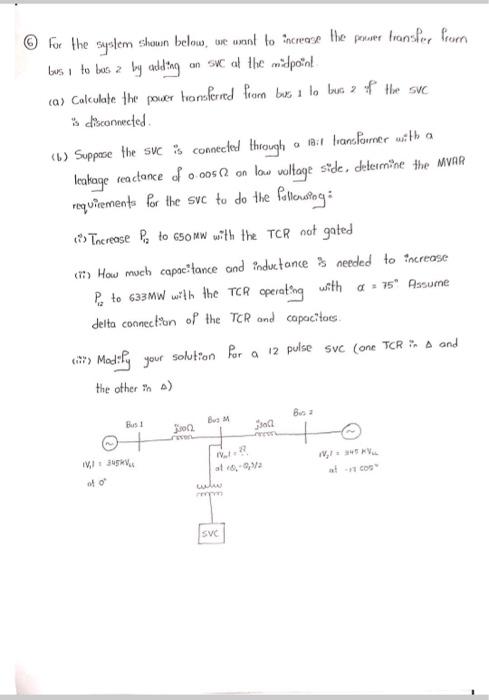 ⑥ For the system shown below, we want to increase the power transfer from
bus 1 to bus 2 by adding an SVC at the midpoint.
(a) Calculate the power transferred from bus 1 to bus 2 if the SVC
is disconnected.
(b) Suppose the SVC is connected through a 18:1 transformer with a
leakage reactance of 0.005Ω on low voltage side, determine the MVAR
requirements for the SVC to do the following:
(i) Increase P12 to 650 MW with the TCR not gated
(ii) How much capacitance and inductance is needed to increase
P12 to 633MW with the TCR operating with α = 75° Assume
delta connection of the TCR and capacitors.
(iii) Modify your solution for a 12 pulse SVC (one TCR in Δ and
the other in Δ)
Bus 1
Bus M
Bus 2
|V1| = 345kVLL
at 0°
at (θ1-θ2)/2
SVC